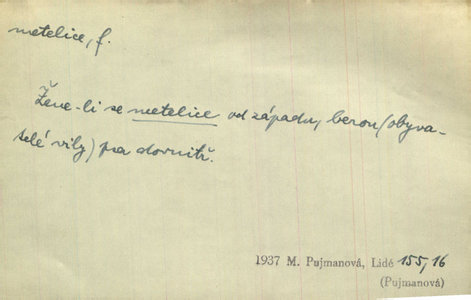 metelice, f.
Žene-li se metelice od západu, berou (obyva-
telé vily) psa dovnitř.
1937 M. Pujmanová, Lidé 155,16
(Pujmanová)